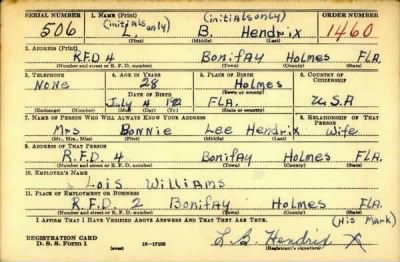 SERIAL NUMBER 1. NAME (Print) (initials only) ORDER NUMBER
(initials only)
506 L. B. Hendrix 1460
(First) (Middle) (Last)
2. ADDRESS (Print)
R.F.D 4 Bonifay Holmes FLA.
(Number and street or R. F. D. number) (Town) (County) (State)
3. TELEPHONE 4. AGE IN YEARS 5. PLACE OF BIRTH 6. COUNTRY OF CITIZENSHIP
None 28 Holmes
DATE OF BIRTH (Town or county)
July 4 FLA. U.S.A
(Exchange) (Number) (Mo.) (Day) (Yr.) (State or country)
7. NAME OF PERSON WHO WILL ALWAYS KNOW YOUR ADDRESS 8. RELATIONSHIP OF THAT PERSON
Mrs Bonnie Lee Hendrix Wife
(Mr., Mrs., Miss) (First) (Middle) (Last)
9. ADDRESS OF THAT PERSON
R.F.D. 4 Bonifay Holmes FLA.
(Number and street or R. F. D. number) (Town) (County) (State)
10. EMPLOYER'S NAME
Lois Williams
11. PLACE OF EMPLOYMENT OR BUSINESS
R.F.D. 2 Bonifay Holmes FLA.
(Number and street or R. F. D. number) (Town) (County) (State)
I AFFIRM THAT I HAVE VERIFIED ABOVE ANSWERS AND THAT THEY ARE TRUE. (His Mark)
REGISTRATION CARD
D. S. S. Form 1 (over) L B. Hendrix X
(Registrant's signature)